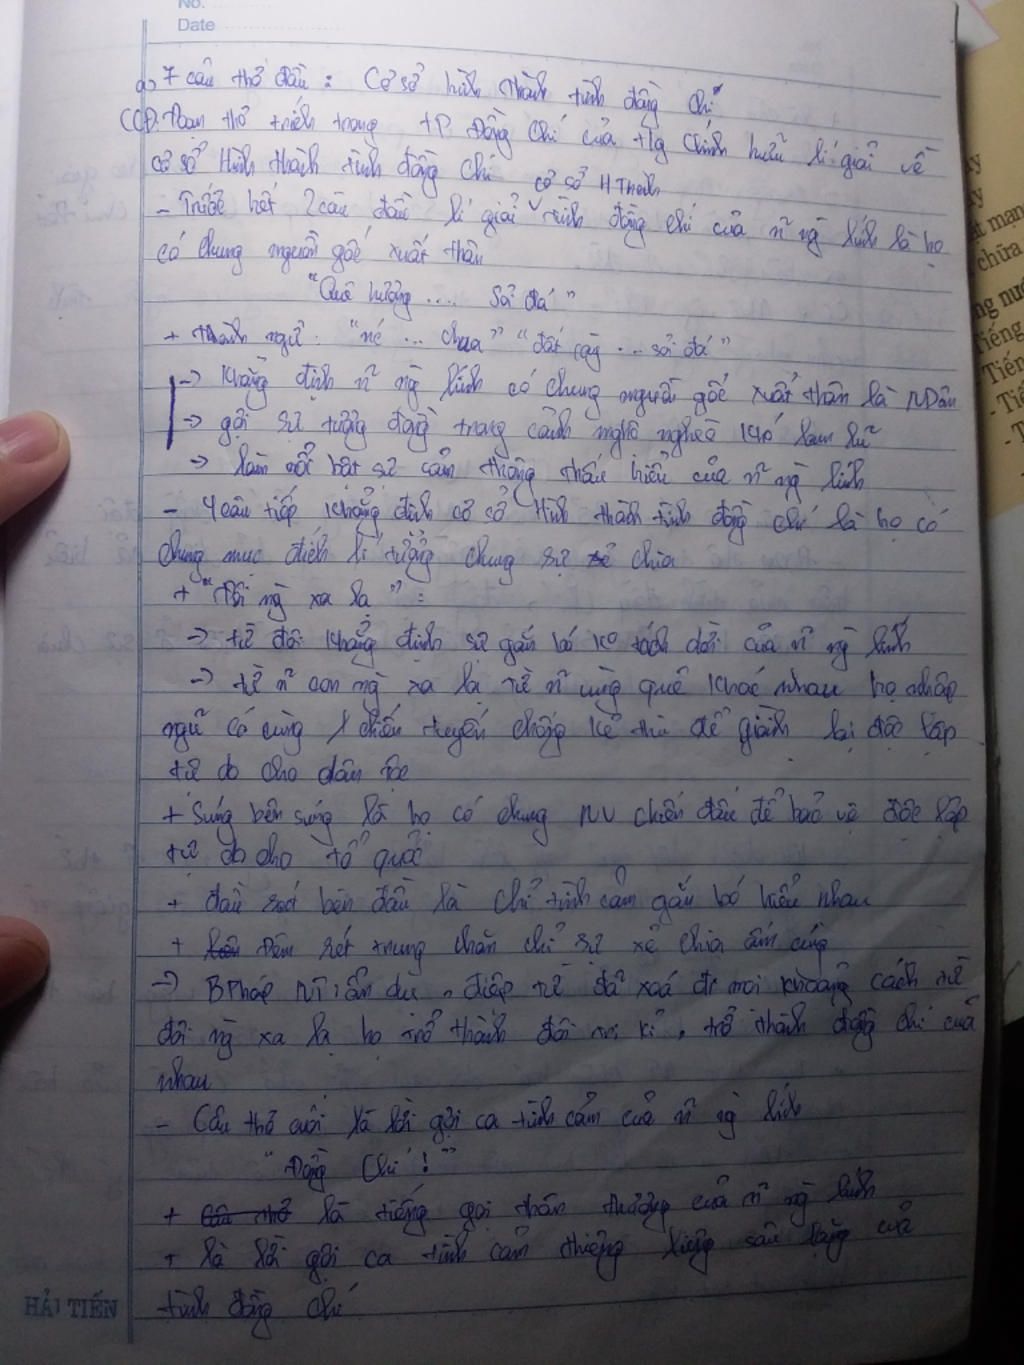 No.
Date
a) 7 câu thơ đầu : Cơ sở hình thành tình đồng chí
CCĐ: Đoạn thơ trích trong TP Đồng Chí của tg Chính Hữu lí giải về
cơ sở hình thành tình đồng chí
cơ sở H Thành
- Trước hết 2 câu đầu lí giải tình đồng chí của n~ ng lính là họ
có chung nguồn gốc xuất thân
"Quê hương .... sỏi đá"
+ thành ngữ : "nc ... chua" "đất cày ... sỏi đá"
-> Khẳng định n~ ng lính có chung nguồn gốc xuất thân là NDân
-> gợi sự tương đồng trong cảnh ngộ nghèo khó lam lũ
-> làm nổi bật sự cảm thông thấu hiểu của n~ ng lính
- 4 câu tiếp khẳng định cơ sở hình thành tình đồng chí là họ có
chung mục đích lí tưởng chung sự sẻ chia
+ "Đôi ng xa lạ" :
-> từ đôi khẳng định sự gắn bó ko tách dời của n~ ng lính
-> từ n~ con ng xa lạ từ n~ vùng quê khác nhau họ nhập
ngũ có cùng 1 chiến tuyến chống kẻ thù để giành lại độc lập
tự do cho dân tộc
+ Súng bên súng là họ có chung NV chiến đấu để bảo vệ độc lập
tự do cho tổ quốc
+ đầu sát bên đầu là chỉ tình cảm gắn bó hiểu nhau
+ Đêm rét trung chăn chỉ sự sẻ chia ấm cúng
-> BPháp NT : ẩn dụ, điệp từ đã xoá đi mọi khoảng cách từ
đôi ng xa lạ họ trở thành đôi tri kỉ, trở thành đồng chí của
nhau
- Câu thơ cuối là lời gợi ca tình cảm của n~ ng lính
"Đồng Chí !"
+ là tiếng gọi thân thương của n~ ng lính
+ là lời gợi ca tình cảm thiêng liêng sâu lặng của
tình đồng chí
HẢI TIẾN